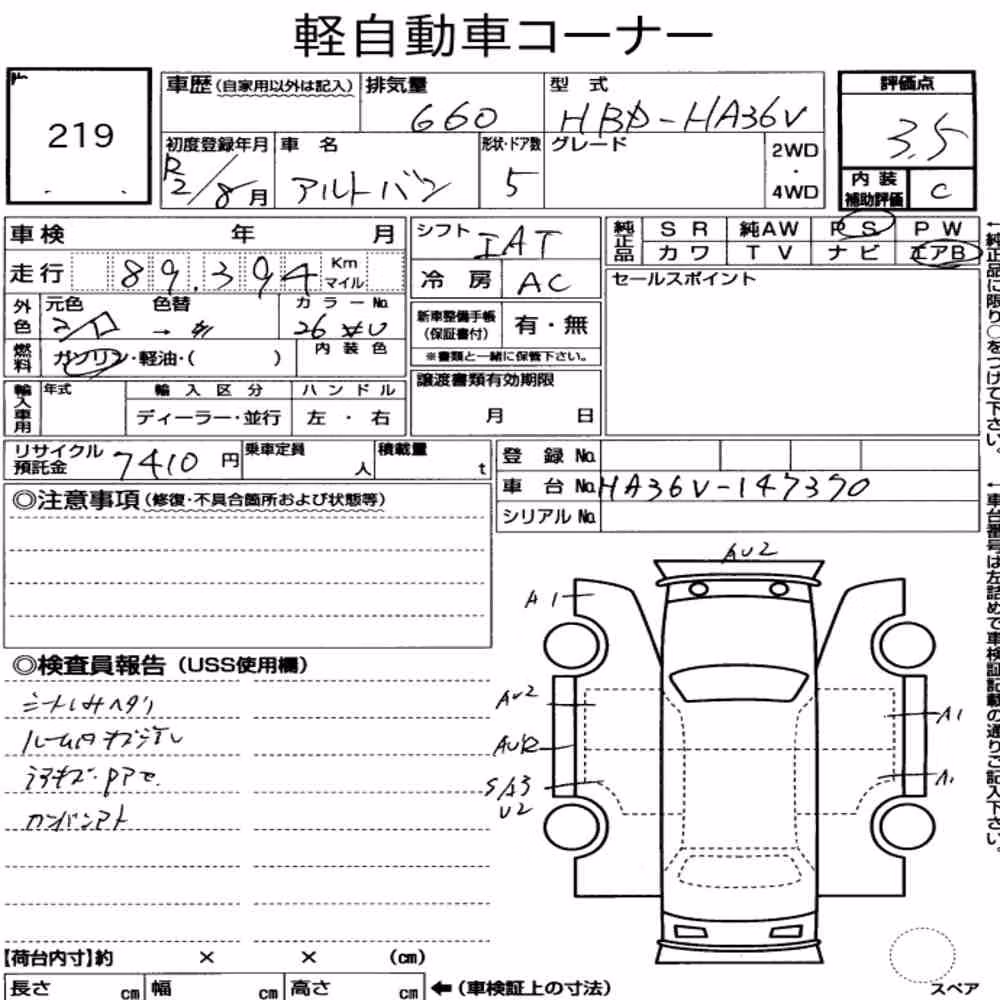 軽自動車コーナー
219
車歴(自家用以外は記入) 排気量 660 型式 HBD-HA36V 評価点 3.5
初度登録年月 R2/8月 車名 アルトバン 形状・ドア数 5 グレード 2WD・4WD 内装補助評価 C
車検 年 月 シフト IAT 純正品 SR 純AW PS PW
カワ TV ナビ エアB
走行 89,394 Km マイル 冷房 AC セールスポイント
外色 元色 シロ 色替 → 〃 カラーNo. 26U
新車整備手帳(保証書付) 有・無
※書類と一緒に保管下さい。
燃料 ガソリン・軽油・( ) 内装色
譲渡書類有効期限 月 日
輸入車用 年式 輸入区分 ハンドル
ディーラー・並行 左・右
リサイクル預託金 7410円 乗車定員 人 積載量 t
登録No.
車台No. HA36V-147390
シリアルNo.
◎注意事項(修復・不具合箇所および状態等)
◎検査員報告(USS使用欄)
シートしみヘタリ
ルーム内キズ汚レ
カンバンアト
AU2
A1
AU2
A1
A1
SA3
U2
【荷台内寸】約 × × (cm)
長さ cm 幅 cm 高さ cm ←(車検証上の寸法)
スペア
←純正品に限り○をつけて下さい。
←車台番号は左詰めで車検証記載の通りご記入下さい。